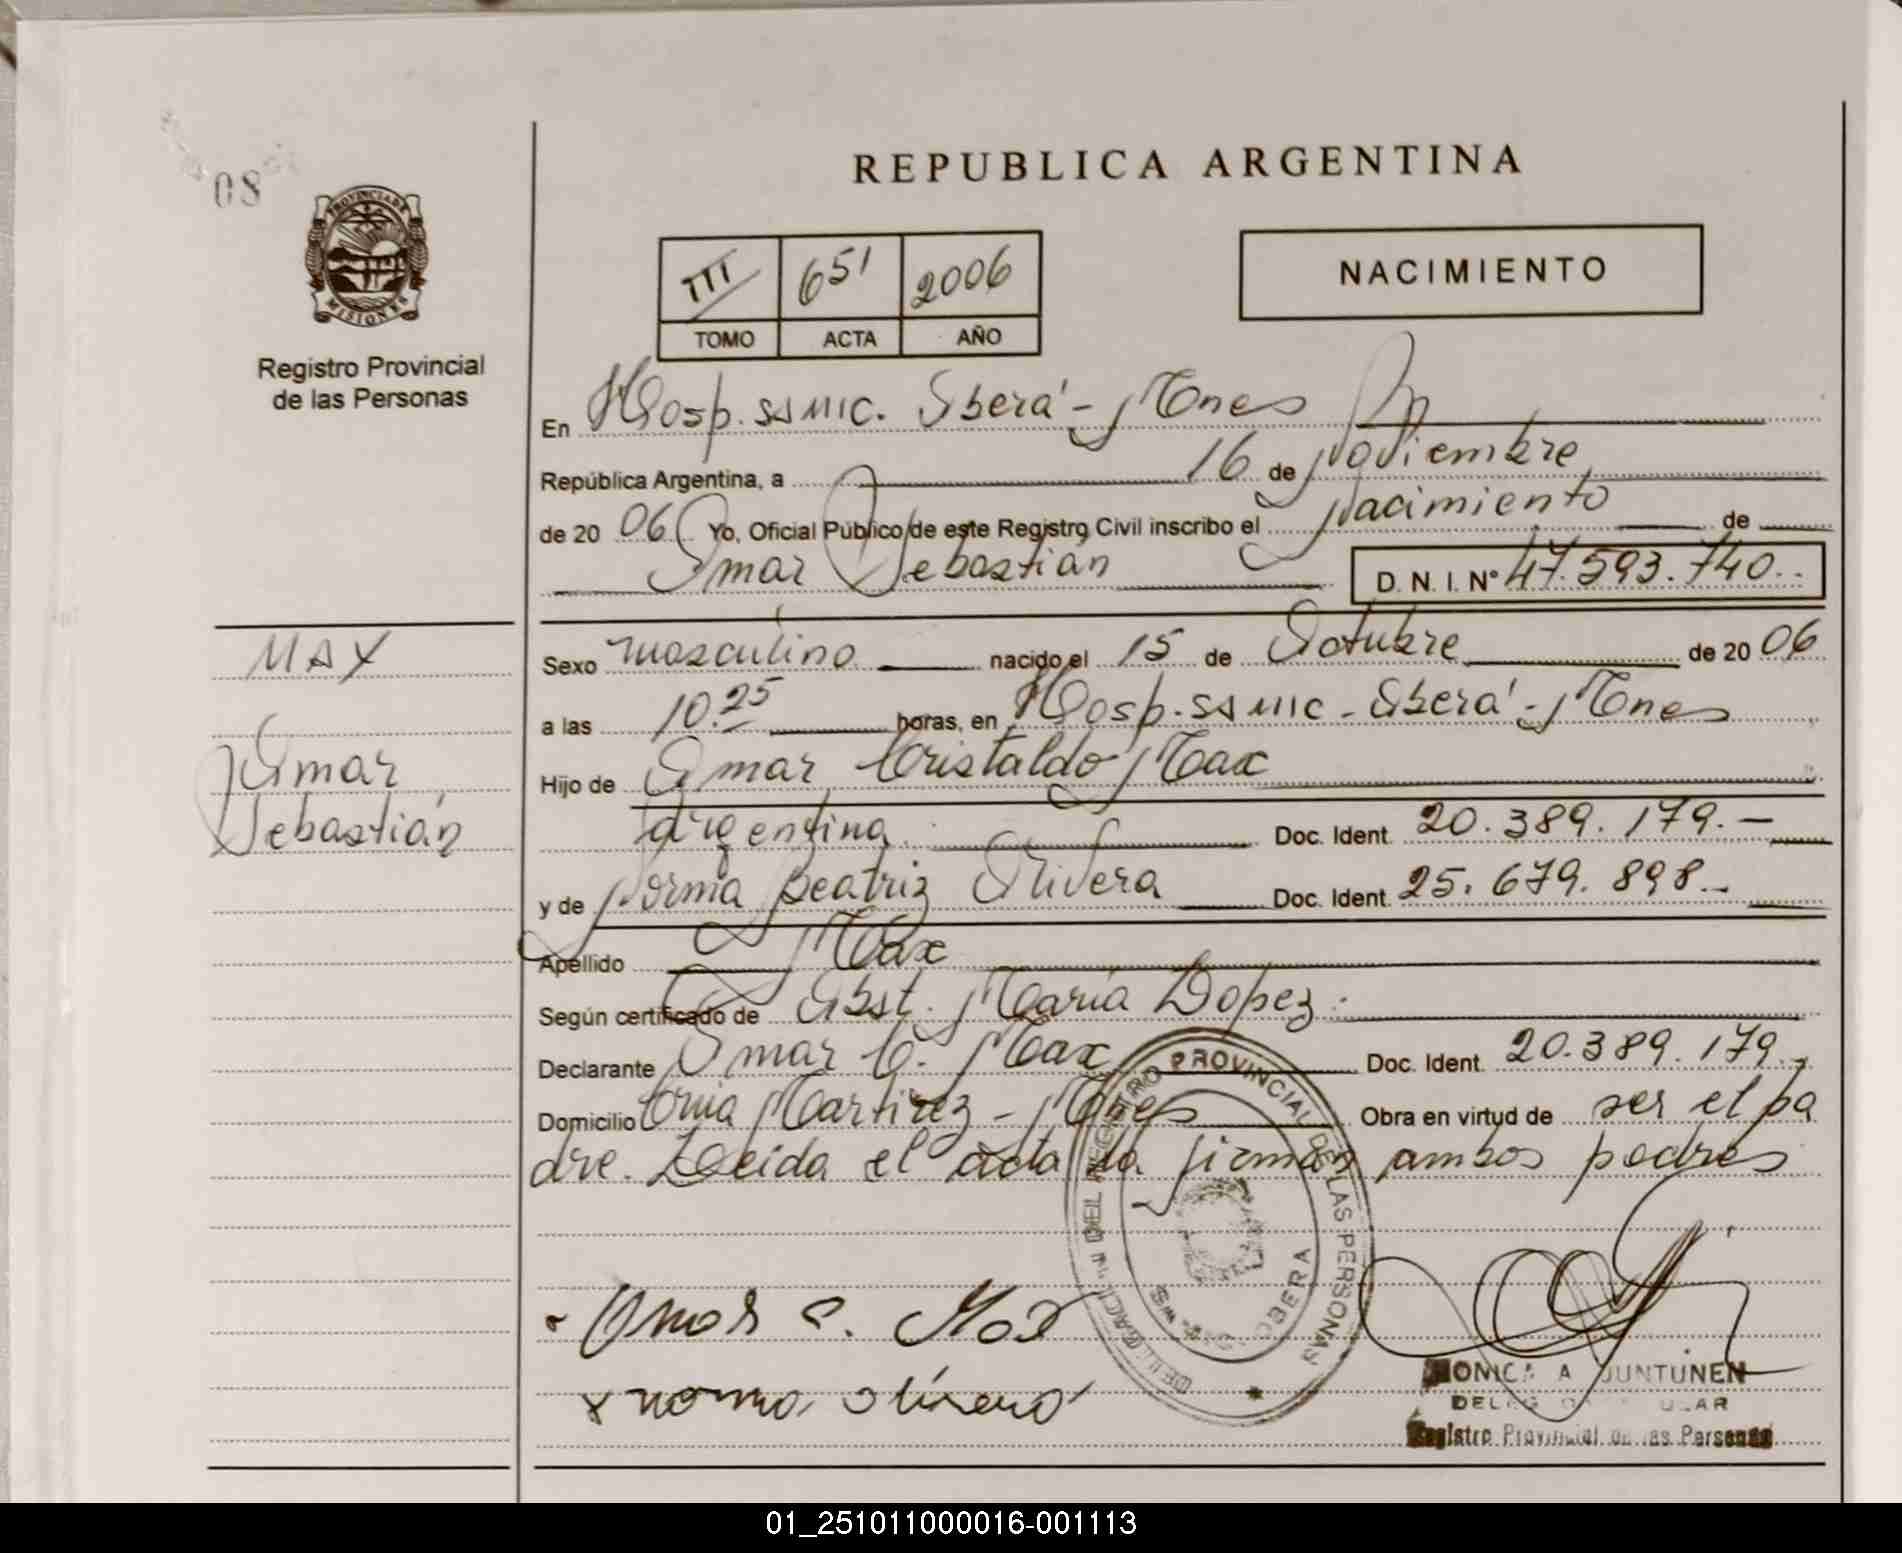 08
PROVINCIA DE
MISIONES
Registro Provincial
de las Personas
REPUBLICA ARGENTINA
III 651 2006
TOMO ACTA AÑO
NACIMIENTO
En Hosp. SAMIC. Oberá - Mnes
República Argentina, a 16 de Noviembre
de 20 06 Yo, Oficial Público de este Registro Civil inscribo el Nacimiento de
Omar Sebastián D. N. I. Nº 47.593.740
MAX
Omar
Sebastián
Sexo masculino nacido el 15 de Octubre de 20 06
a las 10.25 horas, en Hosp. SAMIC - Oberá - Mnes
Hijo de Omar Cristaldo Max
argentina Doc. Ident. 20.389.179.-
y de Norma Beatriz Rivera Doc. Ident. 25.679.898.-
Apellido Max
Según certificado de Obst. María Lopez.
Declarante Omar C. Max Doc. Ident. 20.389.179.-
Domicilio Cnia Martirez - Mnes Obra en virtud de ser el pa
dre. Leida el acta la firman ambos padres
Omar C. Max
x norma rivera
REGISTRO PROVINCIAL DE LAS PERSONAS
OBERA
MONICA A JUNTUNEN
Registro Provincial de las Personas
01_251011000016-001113